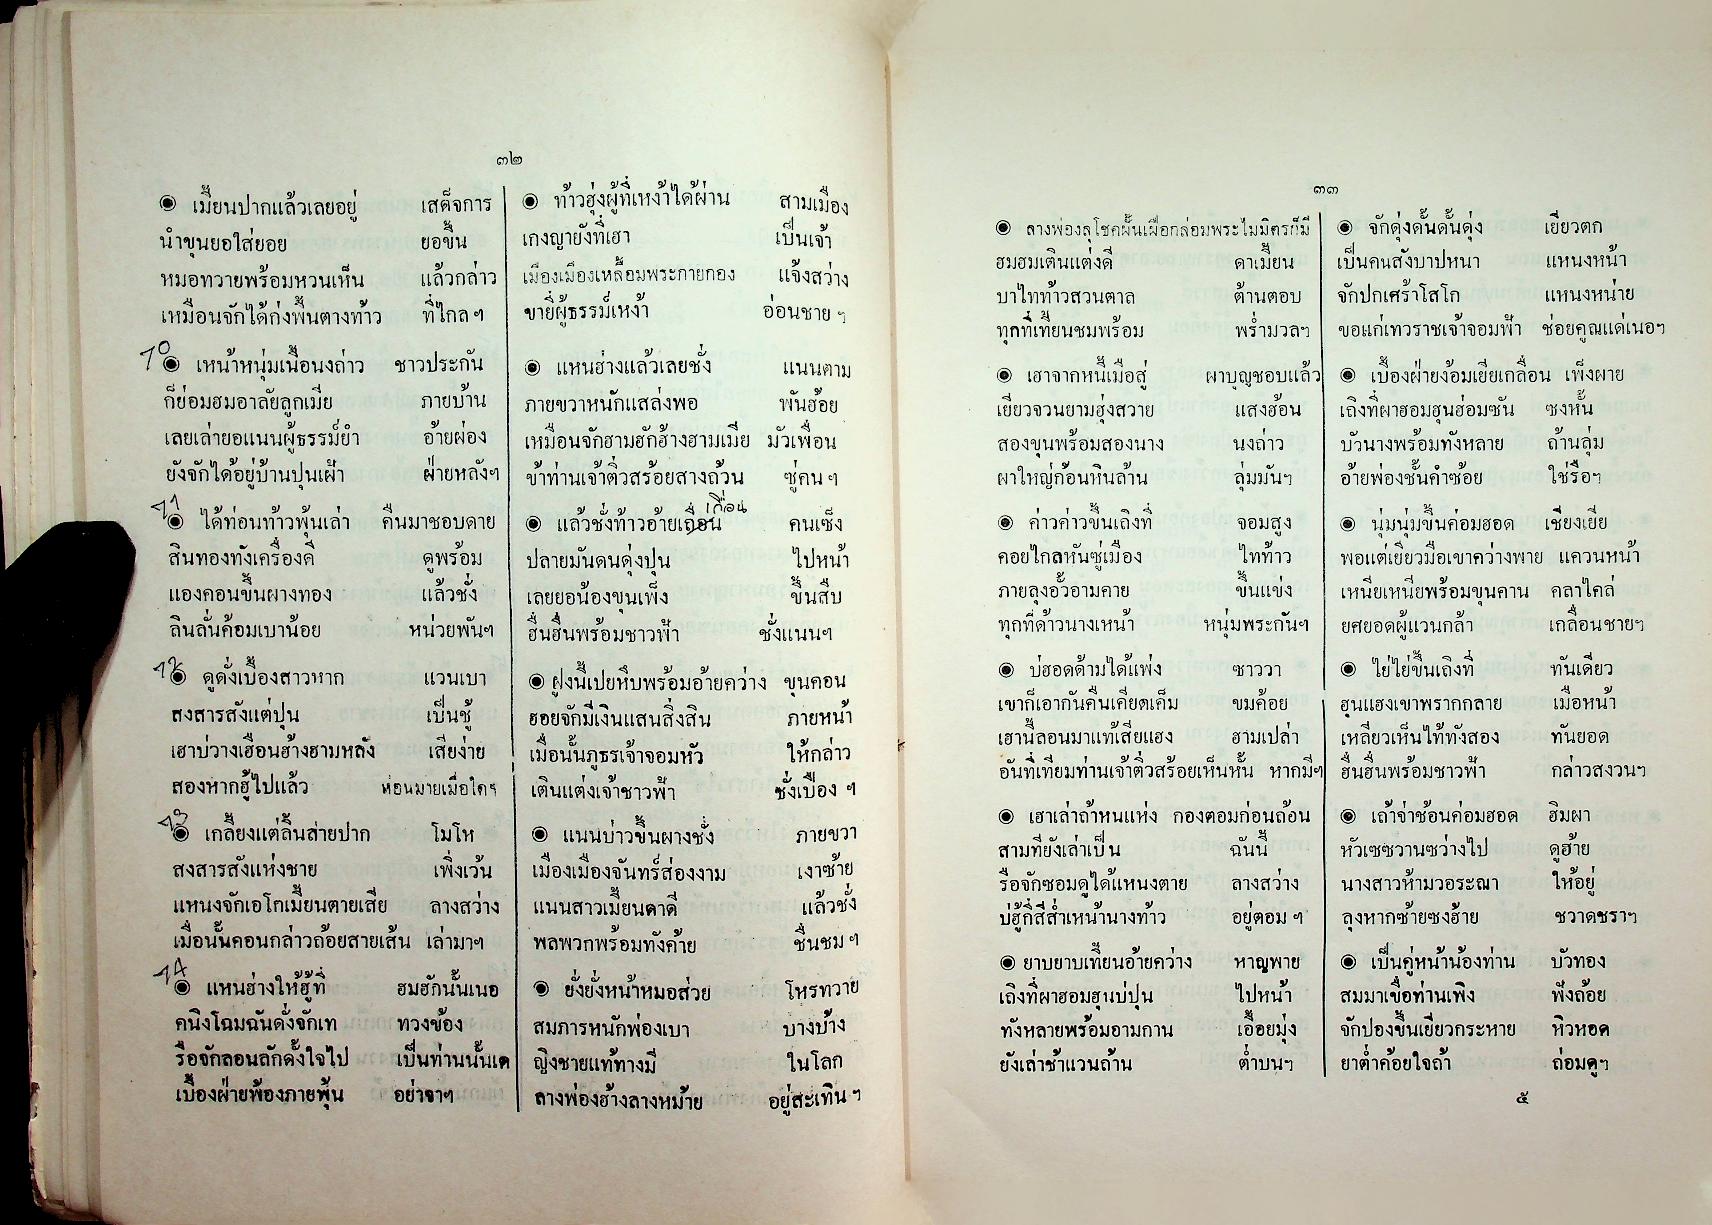 ๓๒
◉ เมี้ยนปากแล้วเลยอยู่ เสด็จการ
นำขุนยอใส่ยอย ยอขึ้น
หมอทวายพร้อมหวนเห็น แล้วกล่าว
เหมือนจักได้ก่งพื้นตางท้าว ที่ไกลฯ
10 ◉ เหน้าหนุ่มเนื้อนงถ่าว ชาวประกัน
ก็ย่อมฮมอาลัยลูกเมีย ภายบ้าน
เลยเล่ายอแนนผู้ธรรม์ยำ อ้ายผ่อง
ยังจักได้อยู่บ้านปุนเฝ้า ฝ่ายหลังฯ
11 ◉ ได้ท่อนท้าวพุ้นเล่า คืนมาชอบดาย
สินทองทังเครื่องดี ดูพร้อม
แองคอนขึ้นผางทอง แล้วชั่ง
ลินลั่นค้อมเบาน้อย หน่วยพันฯ
12 ◉ ดูดั่งเบื้องสาวหาก แวนเบา
สงสารสังแต่ปุน เป็นชู้
เฮาบ่วางเฮือนฮ้างฮามหลัง เสียง่าย
สองหากฮู้ไปแล้ว ห่อนมายเมื่อใดฯ
13 ◉ เกลี้ยงแต่ลิ้นส่ายปาก โมโห
สงสารสังแห่งชาย เพิ่งเว้น
แหนงจักเอโกเมี้ยนตายเสีย ลางสว่าง
เมื่อนั้นคอนกล่าวถ้อยสายเส้น เล่ามาฯ
14 ◉ แหนฮ่างให้ฮู้ที่ ฮมฮักนั้นเนอ
คนิงโฉมฉันดั่งจักเท ทวงข้อง
รือจักลอนลักดั้งใจไป เป็นท่านนั้นเด
เบื้องฝ่ายพ้องภายพุ้น อย่าจาฯ
◉ ท้าวฮุ่งผู้ที่เหง้าได้ผ่าน สามเมือง
เกงญายังที่เฮา เป็นเจ้า
เมืองเมืองเหลื้อมพระกายทอง แจ้งสว่าง
ขายี่ผู้ธรรม์เหง้า อ่อนชายฯ
◉ แหนฮ่างแล้วเลยชั่ง แนนตาม
ภายขวาหนักแสล่งพอ พันฮ้อย
เหมือนจักฮามฮักฮ้างฮามเมีย มัวเพื่อน
ข้าท่านเจ้าติ่วสร้อยสางถ้วน ซู่คนฯ
◉ แล้วชั่งท้าวอ้ายเถื่อน เกื่อน คนเซ็ง
ปลายมันดนดุ่งปุน ไปหน้า
เลยยอน้องขุนเพ็ง ขึ้นสืบ
ฮื่นฮื่นพร้อมชาวฟ้า ชั่งแนนฯ
◉ ฝูงนี้เปยหึบพร้อมอ้ายคว่าง ขุนคอน
ฮอยจักมีเงินแสนสิ่งสิน ภายหน้า
เมื่อนั้นภูธรเจ้าจอมหัว ให้กล่าว
เดินแต่งเจ้าชาวฟ้า ชั่งเบืองฯ
◉ แนนบ่าวขึ้นผางชั่ง ภายขวา
เมืองเมืองจันทร์ส่องงาม เงาซ้าย
แนนสาวเมี้ยนดาดี แล้วชั่ง
พลพวกพร้อมทังค้าย ชื่นชมฯ
◉ ยั่งยั่งหน้าหมอส่วย โหรทวาย
สมภารหนักพ่องเบา บางบ้าง
ญิงชายแท้ทางมี ในโลก
ลางพ่องฮ้างลางหม้าย อยู่สะเทินฯ
๓๓
◉ ลางพ่องลุโชคผั้นเผือกล่อมพระไมมิตรก็มี
ฮมฮมเดินแต่งดี ดาเมี้ยน
บาไทท้าวสวนตาล ต้านตอบ
ทุกที่เที้ยนชมพร้อม พร่ำมวลฯ
◉ เฮาจากหนี้เมือสู่ ผาบุญชอบแล้ว
เยียวจวนยามฮุ่งสวาย แสงฮ้อน
สองขุนพร้อมสองนาง นงถ่าว
ผาใหญ่ก้อนหินล้าน ลุ่มมันฯ
◉ ค่าวค่าวขึ้นเถิงที่ จอมสูง
คอยไกลหันซู่เมือง ไทท้าว
ภายลุงอั้วอามคาย ขึ้นแข่ง
ทุกที่ด้าวนางเหน้า หนุ่มพระกันฯ
◉ บ่ฮอดด้ามได้แพ่ง ชาววา
เขาก็เอากันคืนเคียดเค็ม ขมค้อย
เฮานี้ลอนมาแท้เสียแฮง ฮามเปล่า
อันที่เทียมท่านเจ้าติ่วสร้อยเห็นหั้น หากมีฯ
◉ เฮาเล่าถ้าหนแห่ง กองตอมก่อนถ้อน
สามทียังเล่าเป็น ฉันนี้
รือจักซอมดูได้แหนงตาย ลางสว่าง
บ่ฮู้กี่สี่ส่ำเหน้านางท้าว อยู่ตอมฯ
◉ ยาบยาบเที้ยนอ้ายคว่าง หาญพาย
เถิงที่ผาฮอมฮุนบ่ปุน ไปหน้า
ทังหลายพร้อมอามกาน เอื้อยมุ่ง
ยังเล่าช้าแวนถ้าน ต่ำบนฯ
◉ จักดุ่งดั้นดั้นดุ่ง เยียวตก
เป็นคนสังบาปหนา แหนงหน้า
จักปกเศร้าโสโก แหนงหน่าย
ขอแก่เทวราชเจ้าจอมฟ้า ช่อยคูณแด่เนอฯ
◉ เบื้องฝ่ายง้อมเยียเกลื่อน เพ็งผาย
เถิงที่ผาฮอมฮุนฮ่อมซัน ซงหั้น
บัวนางพร้อมทังหลาย ถ้านลุ่ม
อ้ายพ่องชั้นคำซ้อย ใช่รือฯ
◉ นุ่มนุ่มขึ้นค่อมฮอด เชียงเยีย
พอแต่เยียวมือเขาคว่างพาย แควนหน้า
เหนียเหนียพร้อมขุนคาน คลาไคล่
ยศยอดผู้แวนกล้า เกลื่อนชายฯ
◉ ไย่ไย่ขึ้นเถิงที่ ทันเดียว
ฮุนแฮงเขาพรากกลาย เมือหน้า
เหลียวเห็นไท้ทังสอง ทันยอด
ฮื่นฮื่นพร้อมชาวฟ้า กล่าวสงวนฯ
◉ เถ้าจ่าช้อนค่อมฮอด ฮิมผา
หัวเซซวานซว่างไป ดูฮ้าย
นางสาวห้ามวอระณา ให้อยู่
ลุงหากซ้ายซงฮ้าย ชวาดชราฯ
◉ เป็นคู่หน้าน้องท่าน บัวทอง
สมมาเชื่อท่านเพิง ฟังถ้อย
จักปองขึ้นเยียวกระหาย หิวหอด
ยาต่ำค้อยใจถ้า ถ่อมดูฯ
๕